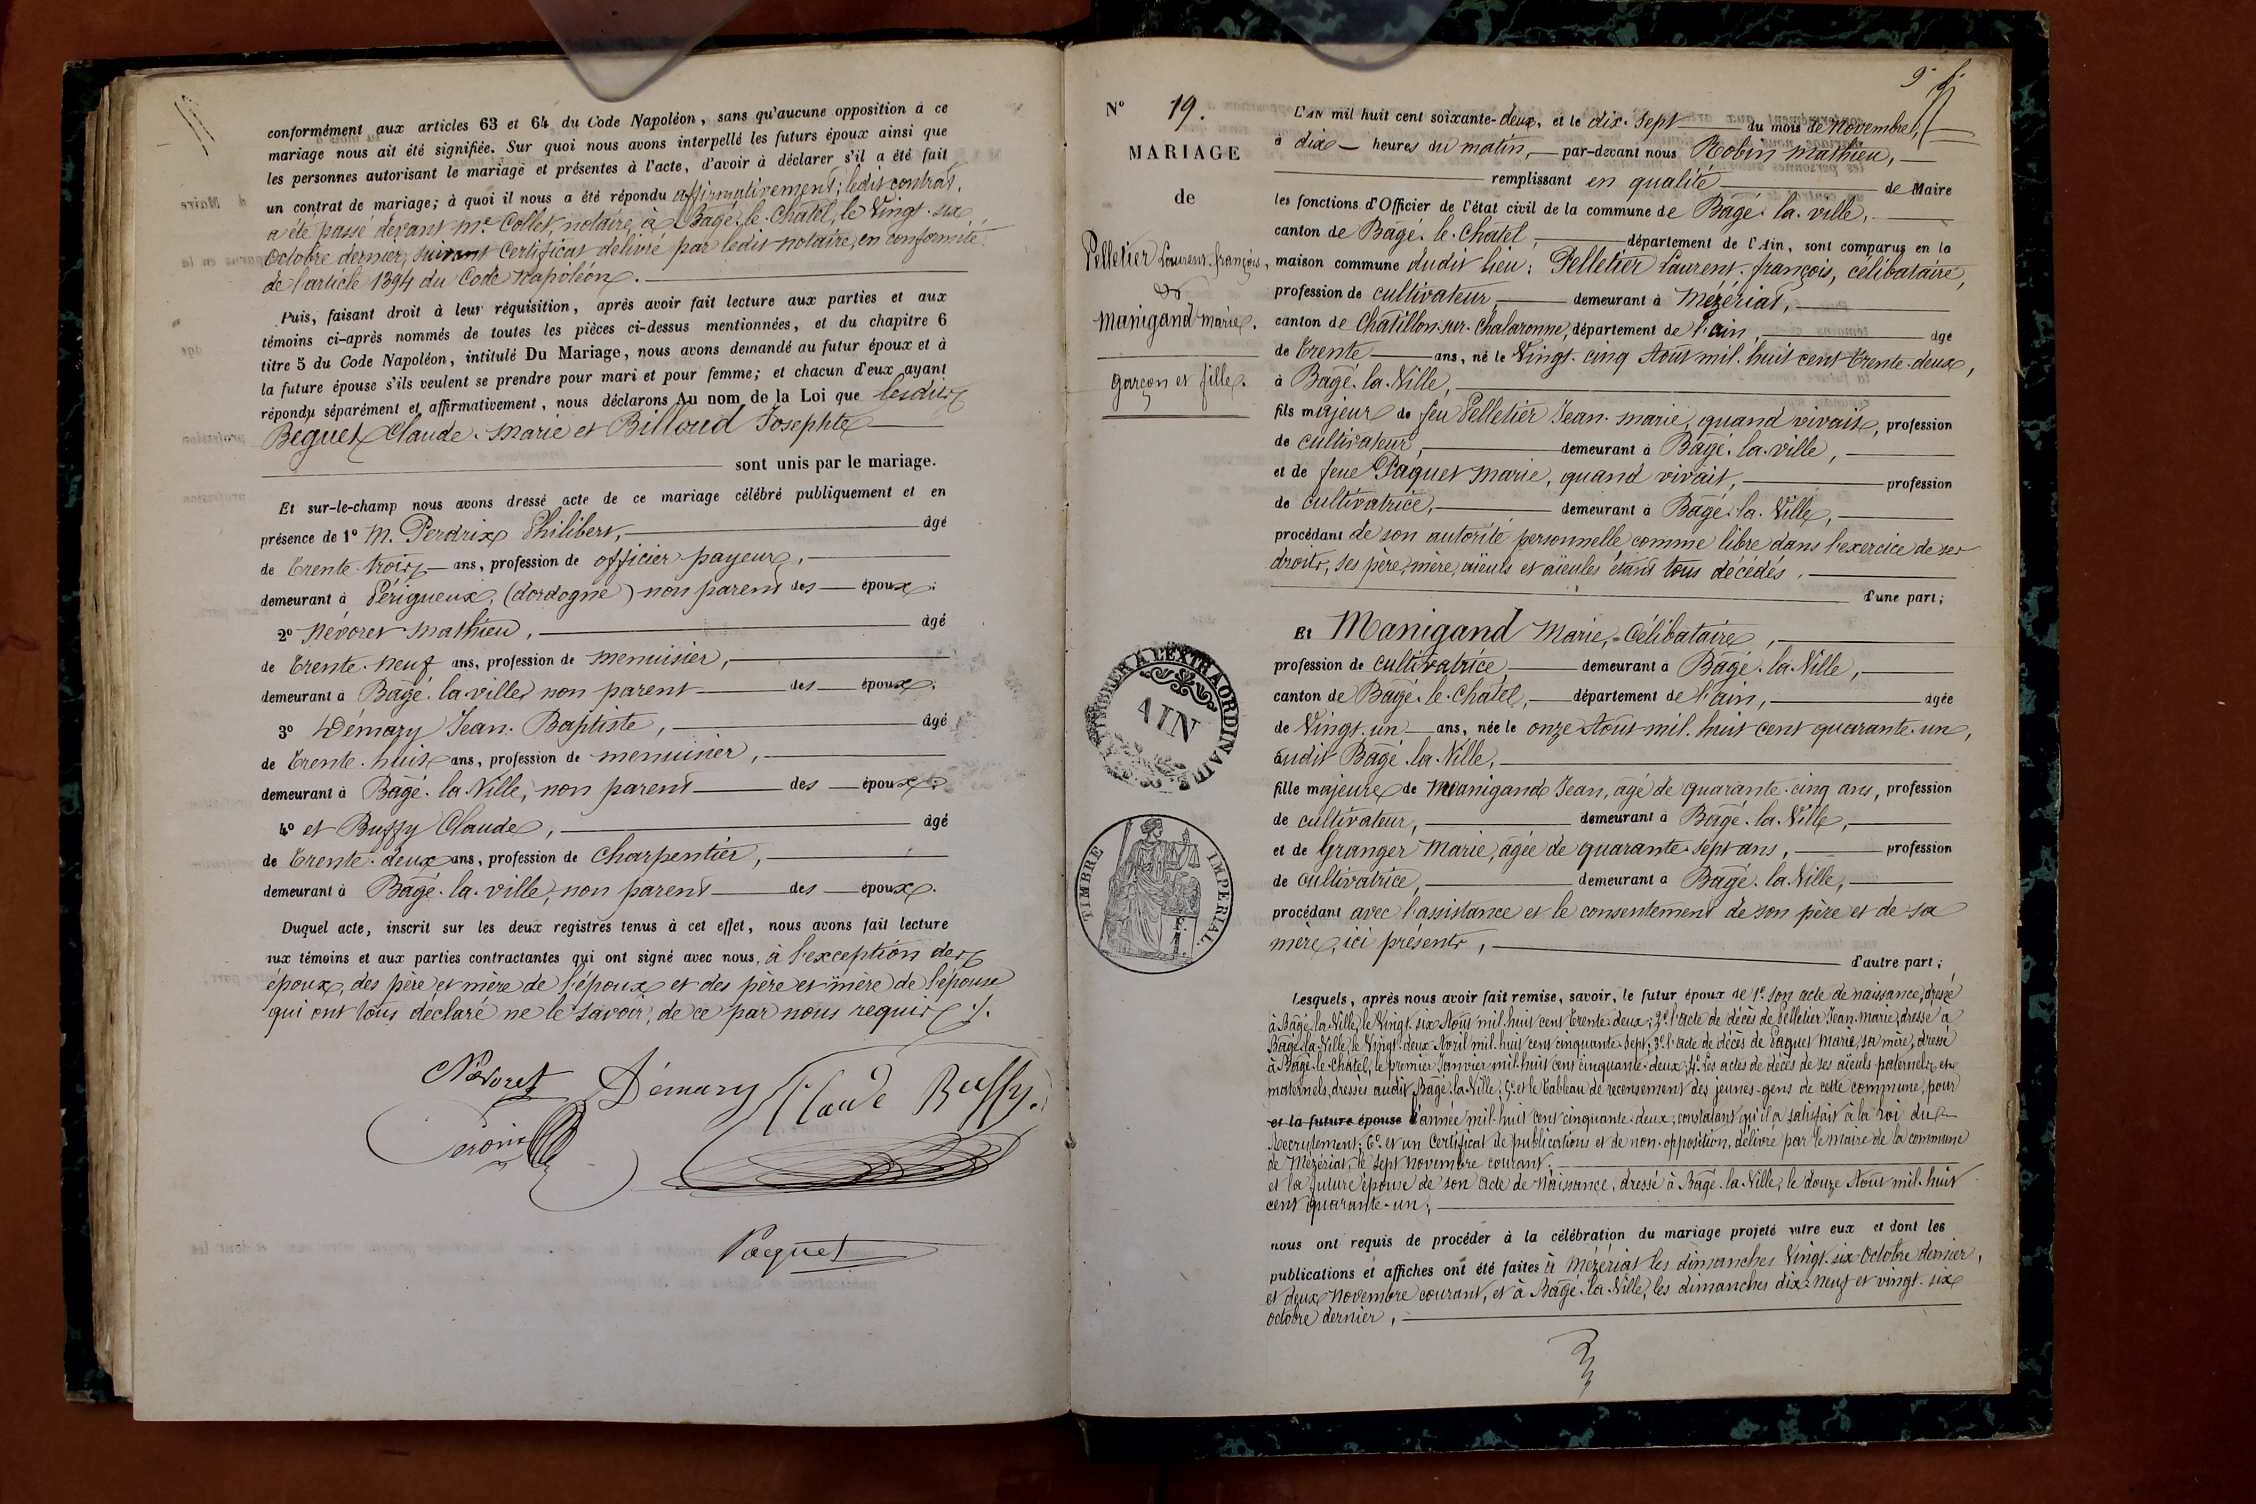 conformément aux articles 63 et 64 du Code Napoléon, sans qu'aucune opposition à ce
mariage nous ait été signifiée. Sur quoi nous avons interpellé les futurs époux ainsi que
les personnes autorisant le mariage et présentes à l'acte, d'avoir à déclarer s'il a été fait
un contrat de mariage; à quoi il nous a été répondu affirmativement; ledit contrat,
a été passé devant Me Collet, notaire, à Bagé-le-Chatel, le Vingt-six
Octobre dernier, suivant Certificat délivré par ledit notaire, en conformité
de l'article 1394 du Code Napoléon.
Puis, faisant droit à leur réquisition, après avoir fait lecture aux parties et aux
témoins ci-après nommés de toutes les pièces ci-dessus mentionnées, et du chapitre 6
titre 5 du Code Napoléon, intitulé Du Mariage, nous avons demandé au futur époux et à
la future épouse s'ils veulent se prendre pour mari et pour femme; et chacun d'eux ayant
répondu séparément et affirmativement, nous déclarons Au nom de la Loi que lesdits
Béguet Claude-Marie et Billoud Josephte
sont unis par le mariage.
Et sur-le-champ nous avons dressé acte de ce mariage célébré publiquement et en
présence de 1° M. Perdrix Philibert, âgé
de Trente-trois ans, profession de officier payeur,
demeurant à Périgueux, (dordogne) non parent des époux.
2° Névoret Mathieu, âgé
de Trente-neuf ans, profession de menuisier,
demeurant à Bagé-la-ville, non parent des époux.
3° Démary Jean-Baptiste, âgé
de Trente-huit ans, profession de menuisier,
demeurant à Bagé-la-Ville, non parent des époux.
4° et Buffy Claude, âgé
de Trente-deux ans, profession de charpentier,
demeurant à Bagé-la-ville, non parent des époux.
Duquel acte, inscrit sur les deux registres tenus à cet effet, nous avons fait lecture
aux témoins et aux parties contractantes qui ont signé avec nous, à l'exception des
époux, des père et mère de l'époux et des père et mère de l'épouse
qui ont tous déclaré ne le savoir, de ce par nous requis ./.
Névoret Démary Claude Buffy.
Paquet
N° 19.
MARIAGE
de
Pelletier Laurent-françois,
&
Manigand Marie.
garçon et fille.
TIMBRER A L'EXTRAORDINAIRE
AIN
TIMBRE IMPERIAL.
L'AN mil huit cent soixante-deux, et le dix-sept du mois de Novembre,
à dix heures du matin, par-devant nous Robin Mathieu,
remplissant en qualité de Maire
les fonctions d'Officier de l'état civil de la commune de Bagé-la-ville,
canton de Bagé-le-Chatel, département de l'Ain, sont comparus en la
maison commune dudit lieu: Pelletier Laurent-françois, célibataire,
profession de cultivateur, demeurant à Mézériat,
canton de Chatillon-sur-Chalaronne, département de l'ain, âgé
de Trente ans, né le Vingt-cinq Août mil-huit cent Trente-deux,
à Bagé-la-Ville,
fils majeur de feu Pelletier Jean-Marie, quand vivait, profession
de cultivateur, demeurant à Bagé-la-ville,
et de feue Paquet Marie, quand vivait, profession
de cultivatrice, demeurant à Bagé-la-Ville,
procédant de son autorité personnelle comme libre dans l'exercice de ses
droits, ses père, mère, aïeuls et aïeules étant tous décédés.
d'une part;
Et Manigand Marie, Célibataire,
profession de cultivatrice demeurant à Bagé-la-Ville,
canton de Bagé-le-Chatel, département de l'ain, âgée
de Vingt-un ans, née le onze Août mil-huit cent quarante-un,
audit Bagé-la-Ville,
fille majeure de Manigand Jean, agé de quarante-cinq ans, profession
de cultivateur, demeurant à Bagé-la-Ville,
et de Granger Marie, agée de quarante-sept ans, profession
de cultivatrice, demeurant à Bagé-la-Ville,
procédant avec l'assistance et le consentement de son père et de sa
mère, ici présents,
d'autre part;
Lesquels, après nous avoir fait remise, savoir, le futur époux de 1° son acte de naissance, dressé
à Bagé-la-Ville, le Vingt-six Août mil-huit cent Trente-deux; 2° l'acte de décès de Pelletier Jean-Marie, dressé à
Bagé-la-Ville, le Vingt-deux Avril mil-huit cent cinquante-sept; 3° l'acte de décès de Paquet Marie, sa mère, dressé
à Bagé-le-Chatel, le premier Janvier mil-huit cent cinquante-deux; 4° Les actes de décès de ses aïeuls paternels et
maternels, dressés audit Bagé-la-Ville; 5° et le Tableau de recensement des jeunes-gens de cette commune, pour
et la future épouse l'année mil-huit cent cinquante-deux, constatant qu'il a satisfait à la Loi du
Recrutement; 6° et un Certificat de publications et de non-opposition, délivré par le Maire de la commune
de Mézériat, le sept novembre courant.
et la future épouse de son acte de Naissance, dressé à Bagé-la-Ville, le douze Août mil-huit
cent quarante-un;
nous ont requis de procéder à la célébration du mariage projeté entre eux et dont les
publications et affiches ont été faites à Mézériat les dimanches Vingt-six Octobre dernier,
et deux novembre courant, et à Bagé-la-Ville, les dimanches dix-neuf et vingt-six
octobre dernier,